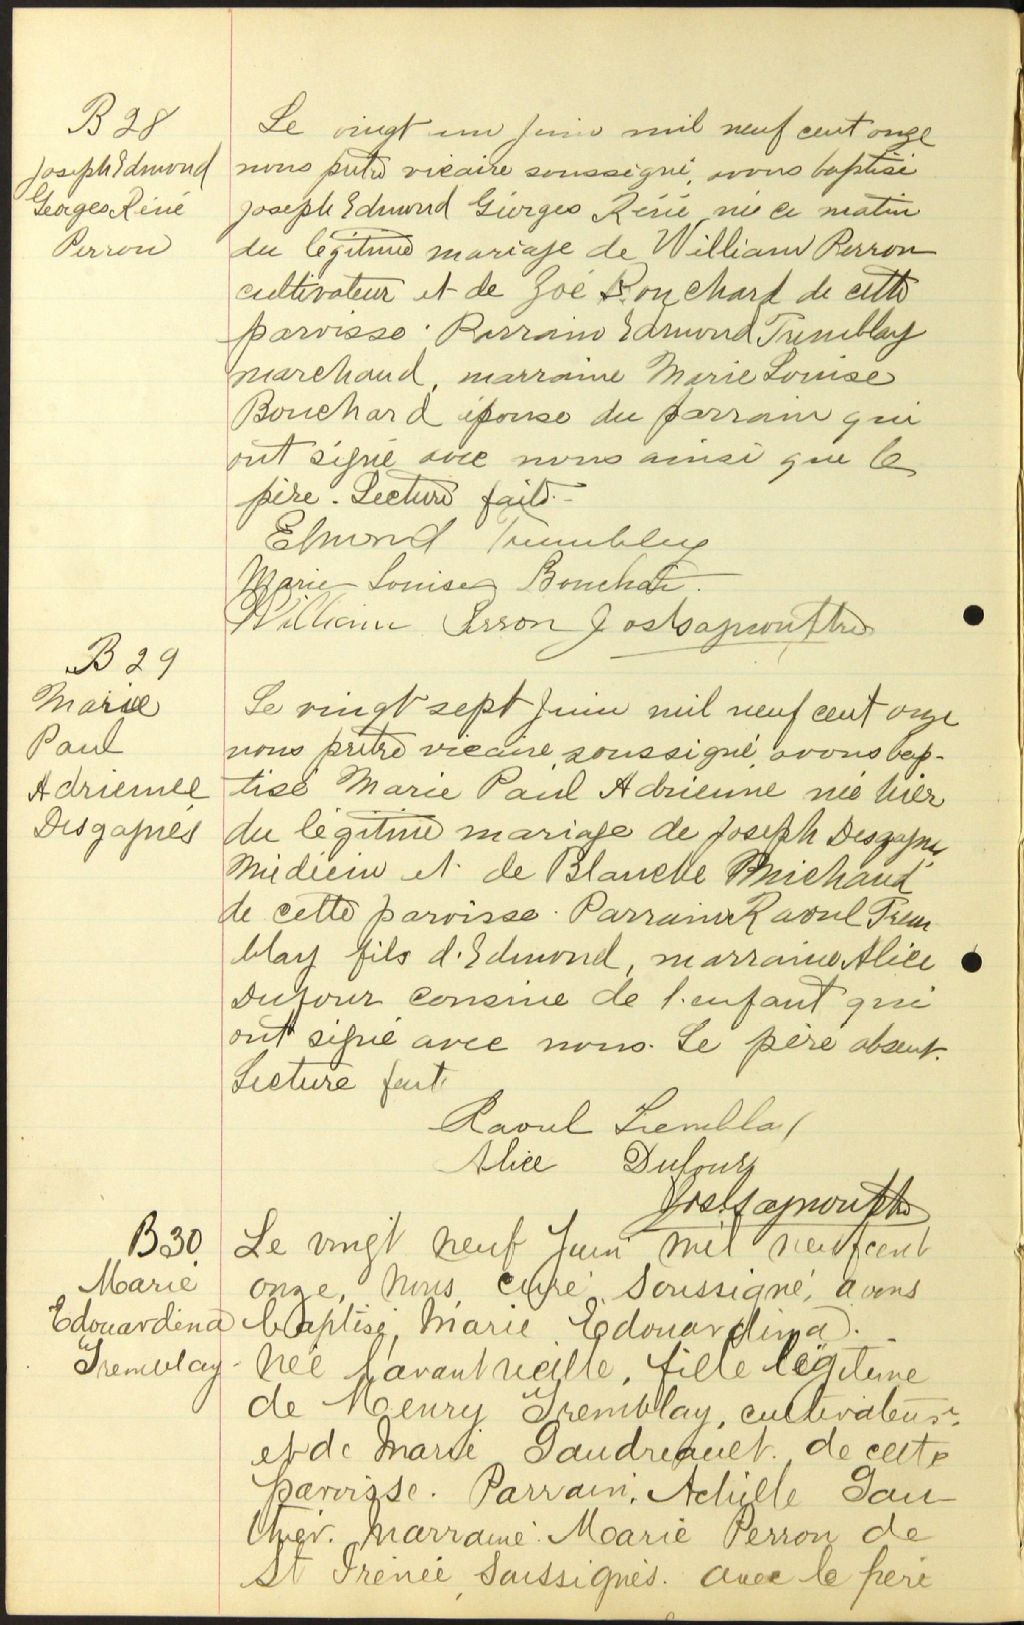 B 28
Joseph Edmond
Georges Réné
Perron
Le vingt un Juin mil neuf cent onze
nous prêtre vicaire soussigné, avons baptisé
Joseph Edmond Georges Réné, né ce matin
du légitime mariage de William Perron
cultivateur et de Zoé Bouchard de cette
paroisse. Parrain Edmond Tremblay
marchand, marraine Marie Louise
Bouchard épouse du parrain qui
ont signé avec nous ainsi que le
père. Lecture faite.
Edmond Tremblay
Marie Louise Bouchard
William Perron Jos
B 29
Marie
Paul
Adrienne
Desgagnés
Le vingt sept Juin mil neuf cent onze
nous prêtre vicaire soussigné, avons bap-
tisé Marie Paul Adrienne née hier
du légitime mariage de Joseph Desgagnés
Médicin et de Blanche Michaud
de cette paroisse. Parrain Raoul Trem
blay fils d'Edmond, marraine Alice
Dufour cousine de l'enfant qui
ont signé avec nous. Le père absent.
Lecture faite
Raoul Tremblay
Alice Dufour
B 30
Marie
Edouardina
Tremblay
Le vingt neuf Juin mil neuf cent
onze, nous, curé soussigné, avons
baptisé, Marie Edouardina.
née l'avant veille, fille légitime
de Henry Tremblay, cultivateur,
et de Marie Gaudreault de cette
paroisse. Parrain, Achille Gau
thier. marraine Marie Perron de
St Irénée, soussignés. avec le père